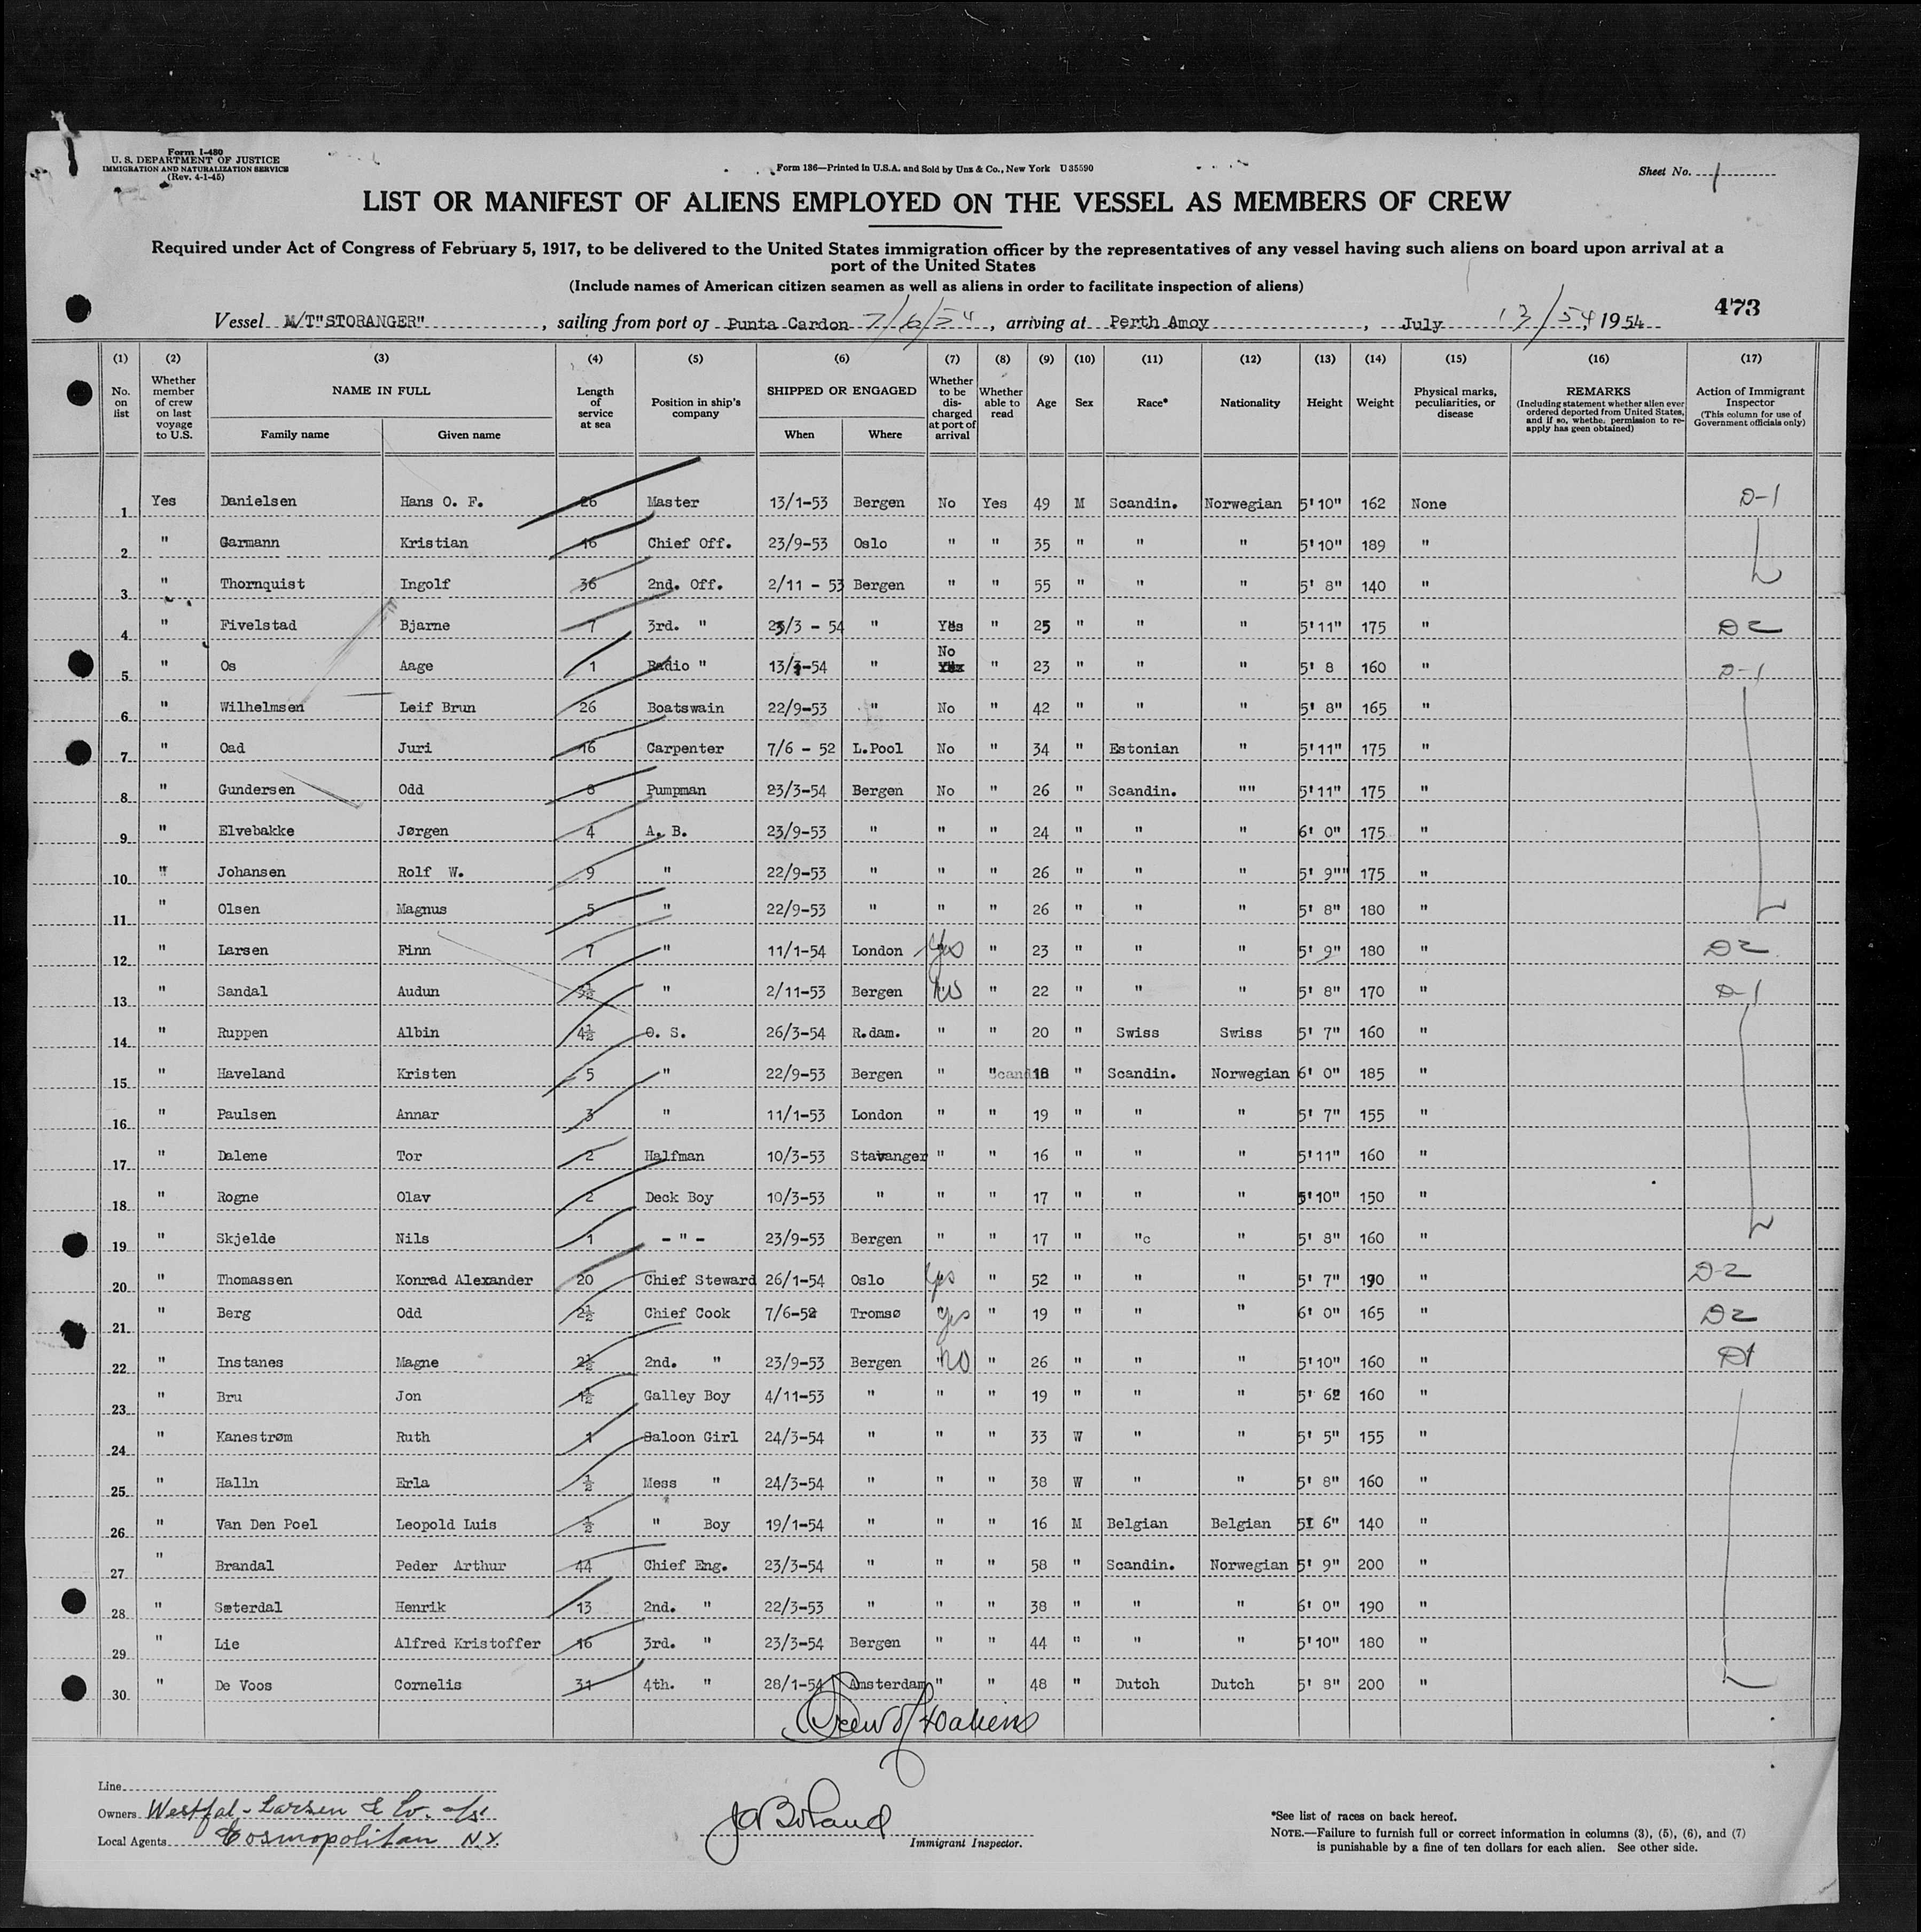 Form I-480
U. S. DEPARTMENT OF JUSTICE
IMMIGRATION AND NATURALIZATION SERVICE
(Rev. 4-1-45)
Form 136—Printed in U.S.A. and Sold by Unz & Co., New York U 35590
Sheet No. 1
LIST OR MANIFEST OF ALIENS EMPLOYED ON THE VESSEL AS MEMBERS OF CREW
Required under Act of Congress of February 5, 1917, to be delivered to the United States immigration officer by the representatives of any vessel having such aliens on board upon arrival at a
port of the United States
(Include names of American citizen seamen as well as aliens in order to facilitate inspection of aliens)
473
Vessel M/T"STORANGER", sailing from port of Punta Cardon 7/6/54, arriving at Perth Amoy, July 13/54, 1954
(1) (2) (3) (4) (5) (6) (7) (8) (9) (10) (11) (12) (13) (14) (15) (16) (17)
No. on list
Whether member of crew on last voyage to U.S.
NAME IN FULL
Family name Given name
Length of service at sea
Position in ship's company
SHIPPED OR ENGAGED
When Where
Whether to be discharged at port of arrival
Whether able to read
Age Sex Race* Nationality Height Weight
Physical marks, peculiarities, or disease
REMARKS
(Including statement whether alien ever ordered deported from United States, and if so, whethe. permission to reapply has geen obtained)
Action of Immigrant Inspector
(This column for use of Government officials only)
1 Yes Danielsen Hans O. F. 26 Master 13/1-53 Bergen No Yes 49 M Scandin. Norwegian 5'10" 162 None D-1
2 " Garmann Kristian 16 Chief Off. 23/9-53 Oslo " " 35 " " " 5'10" 189 "
3 " Thornquist Ingolf 36 2nd. Off. 2/11 - 53 Bergen " " 55 " " " 5' 8" 140 "
4 " Fivelstad Bjarne 7 3rd. " 23/3 - 54 " Yes " 25 " " " 5'11" 175 " D2
5 " Os Aage 1 Radio " 13/3-54 " No " 23 " " " 5' 8 160 " D-1
6 " Wilhelmsen Leif Brun 26 Boatswain 22/9-53 " No " 42 " " " 5' 8" 165 "
7 " Oad Juri 16 Carpenter 7/6 - 52 L.Pool No " 34 " Estonian " 5'11" 175 "
8 " Gundersen Odd 8 Pumpman 23/3-54 Bergen No " 26 " Scandin. "" 5'11" 175 "
9 " Elvebakke Jørgen 4 A. B. 23/9-53 " " " 24 " " " 6' 0" 175 "
10 " Johansen Rolf W. 9 " 22/9-53 " " " 26 " " " 5' 9"" 175 "
11 " Olsen Magnus 5 " 22/9-53 " " " 26 " " " 5' 8" 180 "
12 " Larsen Finn 7 " 11/1-54 London Yes " 23 " " " 5' 9" 180 " D2
13 " Sandal Audun 3½ " 2/11-53 Bergen No " 22 " " " 5' 8" 170 " D-1
14 " Ruppen Albin 4½ O. S. 26/3-54 R.dam. " " 20 " Swiss Swiss 5' 7" 160 "
15 " Haveland Kristen 5 " 22/9-53 Bergen " " 18 " Scandin. Norwegian 6' 0" 185 "
16 " Paulsen Annar 3 " 11/1-53 London " " 19 " " " 5' 7" 155 "
17 " Dalene Tor 2 Halfman 10/3-53 Stavanger " " 16 " " " 5'11" 160 "
18 " Rogne Olav 2 Deck Boy 10/3-53 " " " 17 " " " 5'10" 150 "
19 " Skjelde Nils 1 - " - 23/9-53 Bergen " " 17 " "c " 5' 8" 160 "
20 " Thomassen Konrad Alexander 20 Chief Steward 26/1-54 Oslo Yes " 52 " " " 5' 7" 190 " D-2
21 " Berg Odd 2½ Chief Cook 7/6-52 Tromsø Yes " 19 " " " 6' 0" 165 " D2
22 " Instanes Magne 2½ 2nd. " 23/9-53 Bergen No " 26 " " " 5'10" 160 " D1
23 " Bru Jon 1½ Galley Boy 4/11-53 " " " 19 " " " 5' 62 160 "
24 " Kanestrøm Ruth 1 Saloon Girl 24/3-54 " " " 33 W " " 5' 5" 155 "
25 " Halln Erla ½ Mess " 24/3-54 " " " 38 W " " 5' 8" 160 "
26 " Van Den Poel Leopold Luis ½ " Boy 19/1-54 " " " 16 M Belgian Belgian 5' 6" 140 "
27 " Brandal Peder Arthur 44 Chief Eng. 23/3-54 " " " 58 " Scandin. Norwegian 5' 9" 200 "
28 " Sæterdal Henrik 13 2nd. " 22/3-53 " " " 38 " " " 6' 0" 190 "
29 " Lie Alfred Kristoffer 16 3rd. " 23/3-54 Bergen " " 44 " " " 5'10" 180 "
30 " De Voos Cornelis 31 4th. " 28/1-54 Amsterdam " " 48 " Dutch Dutch 5' 8" 200 "
Crew of 40 aliens
Line
Owners Westfal-Larsen & Co. A/S
Local Agents Cosmopolitan N.Y.
Immigrant Inspector.
*See list of races on back hereof.
NOTE.—Failure to furnish full or correct information in columns (3), (5), (6), and (7)
is punishable by a fine of ten dollars for each alien. See other side.